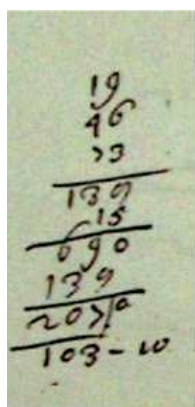 19
46
73
138
15
690
138
2070
103 -